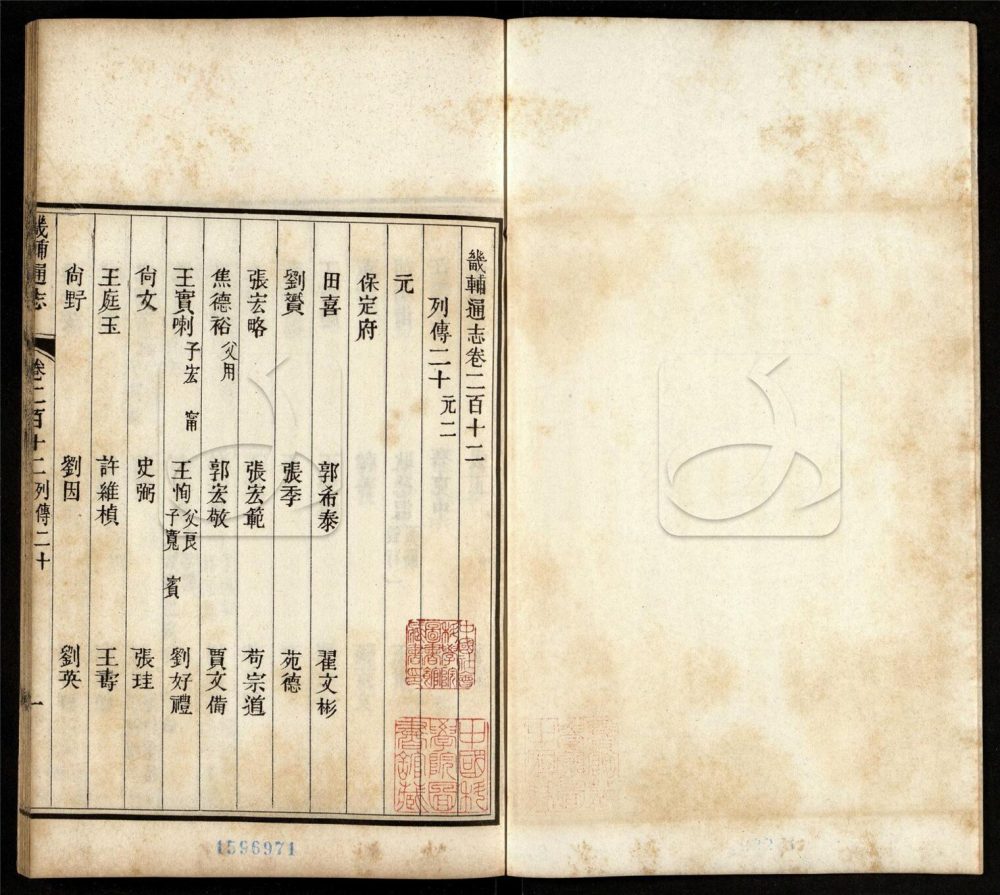 畿輔通志卷二百十二
列傳二十 元二
元
保定府
田喜 郭希泰 翟文彬
劉贇 張季 苑德
張宏略 張宏範 苟宗道
焦德裕 父用 郭宏敬 賈文備
王實喇 子宏 甯 王恂 父良 子寬 賓 劉好禮
尙文 史弼 張珪
王庭玉 許維楨 王壽
尙野 劉因 劉英
畿輔通志 卷二百十二 列傳二十 一
中國社會科學院圖書館藏書印
中國科學院圖書館藏
1596971